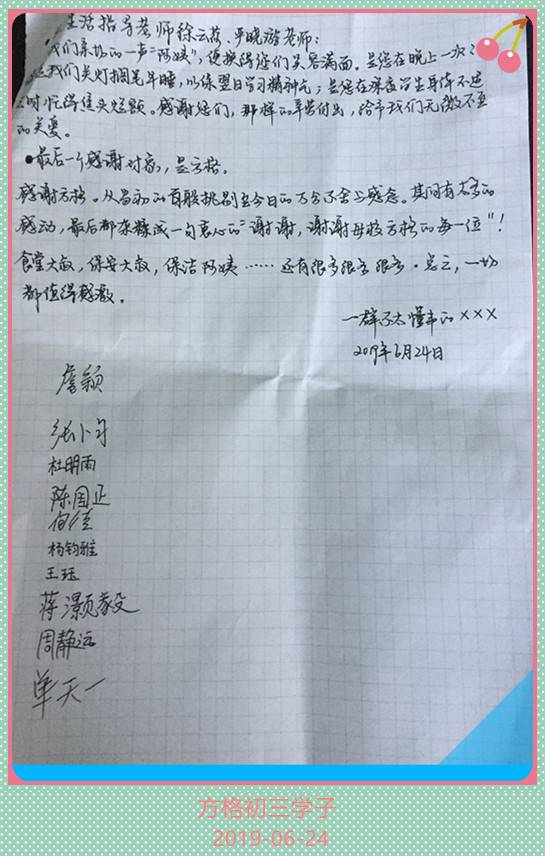 生活指导老师徐云芬、平晓璇老师：
我们亲切的一声"阿姨"，便换得您们笑容满面。是您在晚上一次次
我们关灯捆笔早睡，以保翌日学习精神充；是您在深夜学生身体不适
时忙得焦头烂额。感谢您们，那样的辛苦付出，给予我们无微不至
的关爱。
●最后一个感谢对象，是方格。
感谢方格。从当初的百般挑剔至今日的万分不舍与感念。其间有太多的
感动，最后都杂糅成一句衷心的"谢谢，谢谢母校方格的每一位"！
食堂大叔，保安大叔，保洁阿姨……还有很多很多很多。总之，一切
都值得感激。
一群不太懂事的×××
2019年6月24日
虞颖
杜明雨
陈国正
杨钧雅
王珏
蒋灏毅
周静远
单天一
方格初三学子
2019-06-24